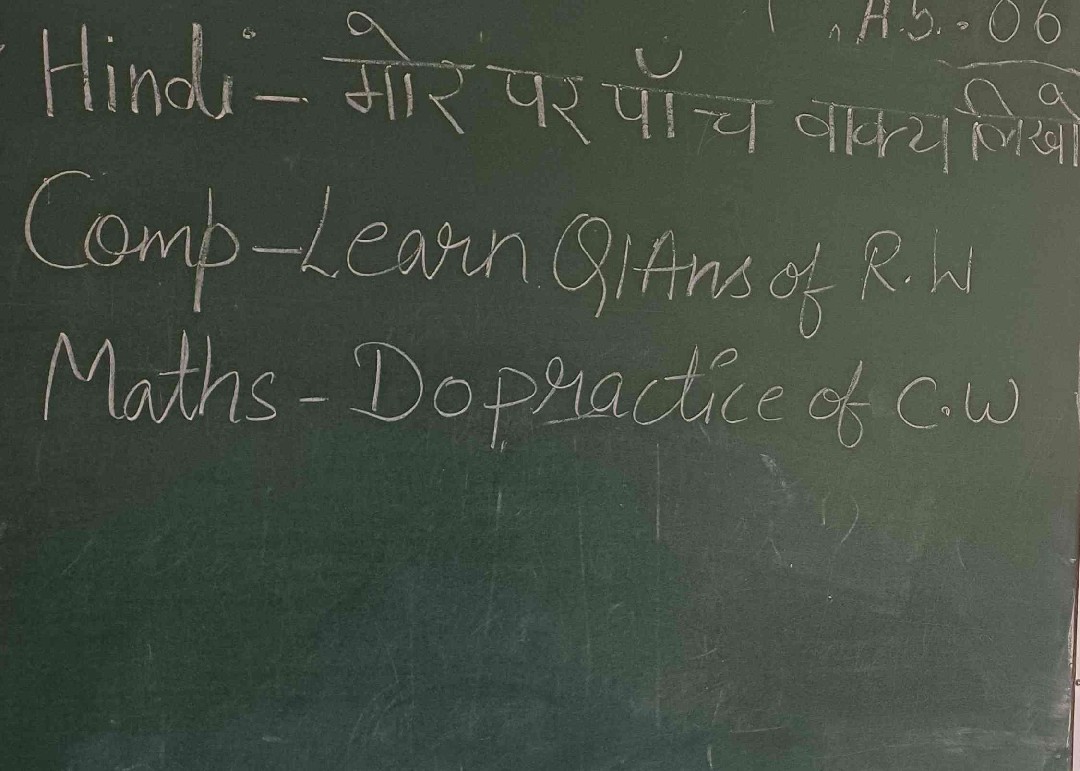 A.S.-06
Hindi - मोर पर पाँच वाक्य लिखो
Comp-Learn Q/Ans of R.W
Maths - Do practice of C.W